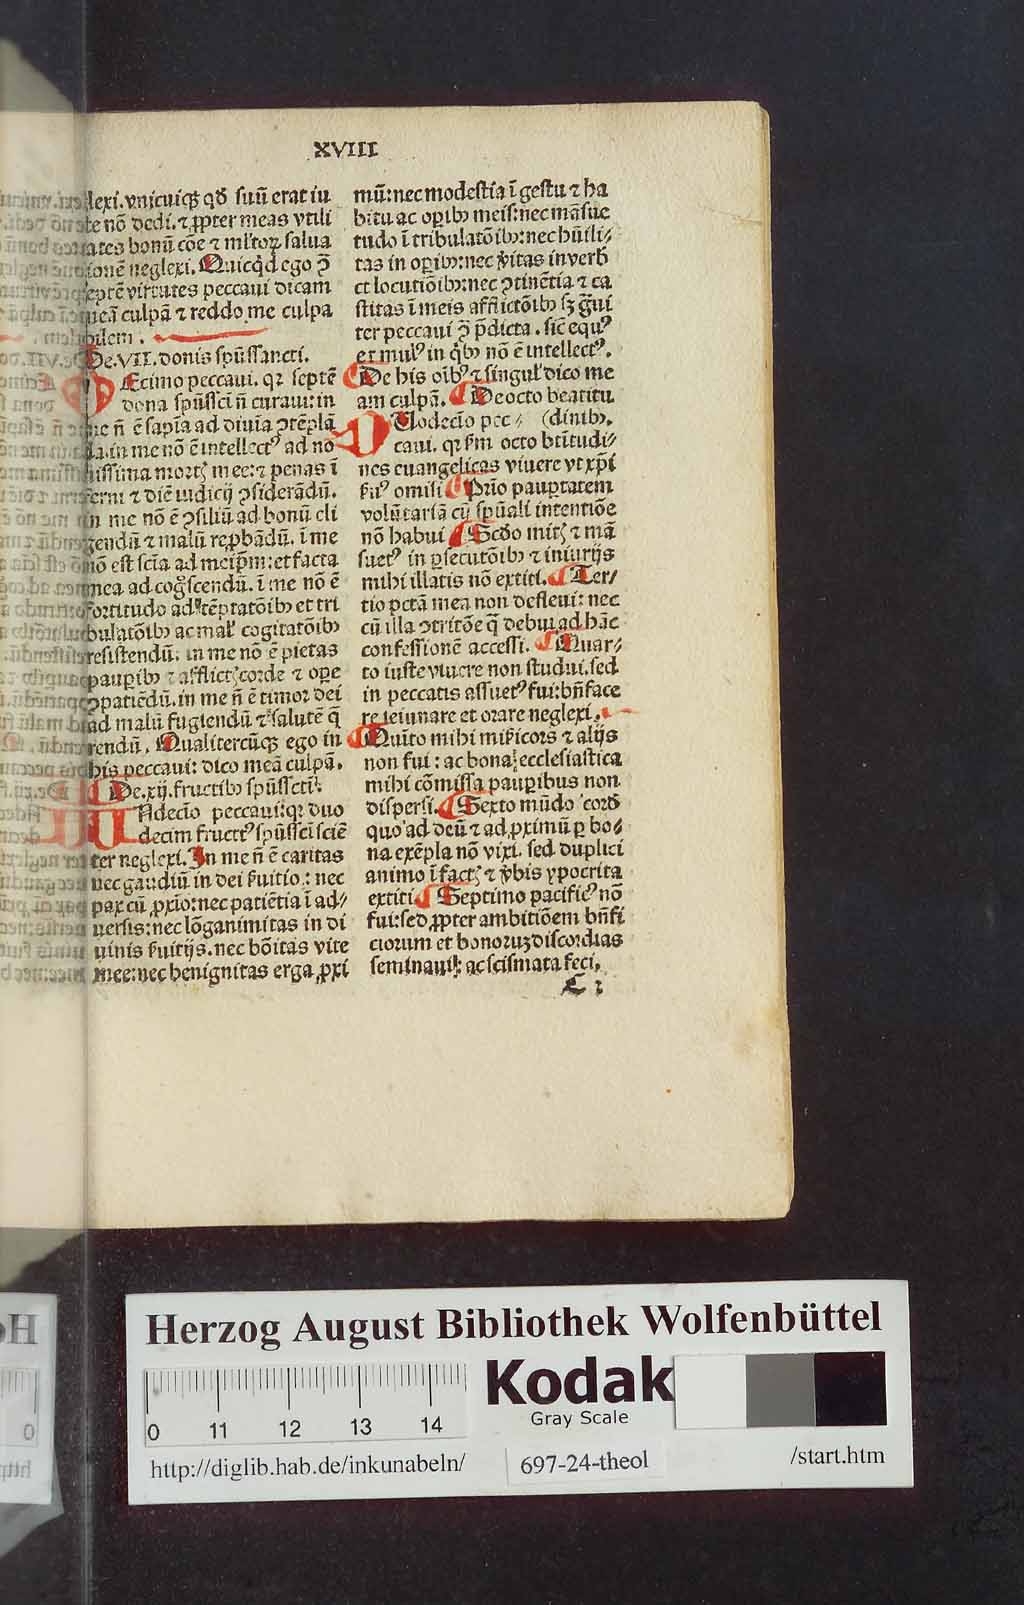 XVIII
lexi. vnicuiqꝫ qđ suū erat iu
te nō dedi. ⁊ ꝓpter meas vtili
tates bonū cōe ⁊ ml'toꝝ salua
tionē neglexi. Quicqͥd ego ꝯ̄
septē virtutes peccaui dicam
meā culpā ⁊ reddo me culpa
bilem.
De.VII. donis spūssancti.
DEcimo peccaui. qꝛ septē
dona spūssci n̄ curaui: in
me n̄ ē sapīa ad diuīa ꝯtēplā
da. in me nō ē intellectꝰ ad no
uissima mortꝭ mee: ⁊ penas ī
ferni ⁊ diē iudicij ꝯsiderādū.
in me nō ē ꝯsiliū ad bonū eli
gendū ⁊ malū reꝓbādū. ī me
nō est scīa ad meip̄m: et facta
mea ad cog̊scendū. ī me nō ē
fortitudo ad tēptatōibꝫ et tri
bulatōibꝫ ac mal' cogitatōibꝫ
resistendū. in me nō ē pietas
pauꝑibꝫ ⁊ afflictꝭ corde ⁊ oꝑe
ꝯpatiēdū. in me n̄ ē timor dei
ad malū fugiendū ⁊ salutē q̄
rendū. Qualitercūqꝫ ego in
his peccaui: dico meā culpā.
De.xij. fructibꝫ spūsscti.
UNdecīo peccaui: qꝛ duo
decim fructꝰ spūssci sciē
ter neglexi. In me n̄ ē caritas
nec gaudiū in dei ẜuitio: nec
pax cū ꝓxīo: nec patiētia ī ad⸗
uersis: nec lōganimitas in di
uinis ẜuitijs. nec bōitas vite
mee: nec benignitas erga ꝓxi
mū: nec modestia ī gestu ⁊ ha
bitu ac oꝑibꝫ meis: nec māsue
tudo ī tribulatōibꝫ: nec hūili⸗
tas in oꝑibꝫ: nec v̓itas in verb
et locutiōibꝫ: nec ꝯtinētia ⁊ ca
stitas ī meis afflictōibꝫ sꝫ gͣui
ter peccaui ꝯ̄ p̄dicta. sic̄ equꝰ
et mulꝰ in qͥbꝫ nō ē intellectꝰ.
De his oībꝰ ⁊ singul' dico me
am culpā. De octo beatitu
DUodecīo pec⸗ (dinibꝫ.
caui. qꝛ ẜm octo btītudi⸗
nes euangelicas viuere vt xp̄i
ẜuꝰ omisi Prīo pauꝑtatem
volūtariā cū spūali intentiōe
nō habui Scd̓o mitꝭ ⁊ mā
suetꝰ in ꝑsecutōibꝫ ⁊ iniurijs
mihi illatis nō extiti. Ter⸗
tio pctā mea non defleui: nec
cū illa ꝯtritōe q̄ debui ad hāc
confessionē accessi. Quar⸗
to iuste viuere non studui. sed
in peccatis assuetꝰ fui: bn̄face
re ieiunare et orare neglexi.
Quīto mihi miẜicors ⁊ alijs
non fui: ac bona ecclesiastica
mihi cōmissa pauꝑibus non
dispersi. Sexto mūdo cord
quo ad deū ⁊ ad ꝓximū ꝑ bo⸗
na exēpla nō vixi. sed duplici
animo ī factꝭ ⁊ v̓bis ypocrita
extiti Septimo pacificꝰ nō
fui: sed ꝓpter ambitiōem bn̄fi
ciorum et bonoruꝫ discordias
seminaui: ac scismata feci.
C 2
Herzog August Bibliothek Wolfenbüttel
Kodak
Gray Scale
0 11 12 13 14
http://diglib.hab.de/inkunabeln/
697-24-theol
/start.htm